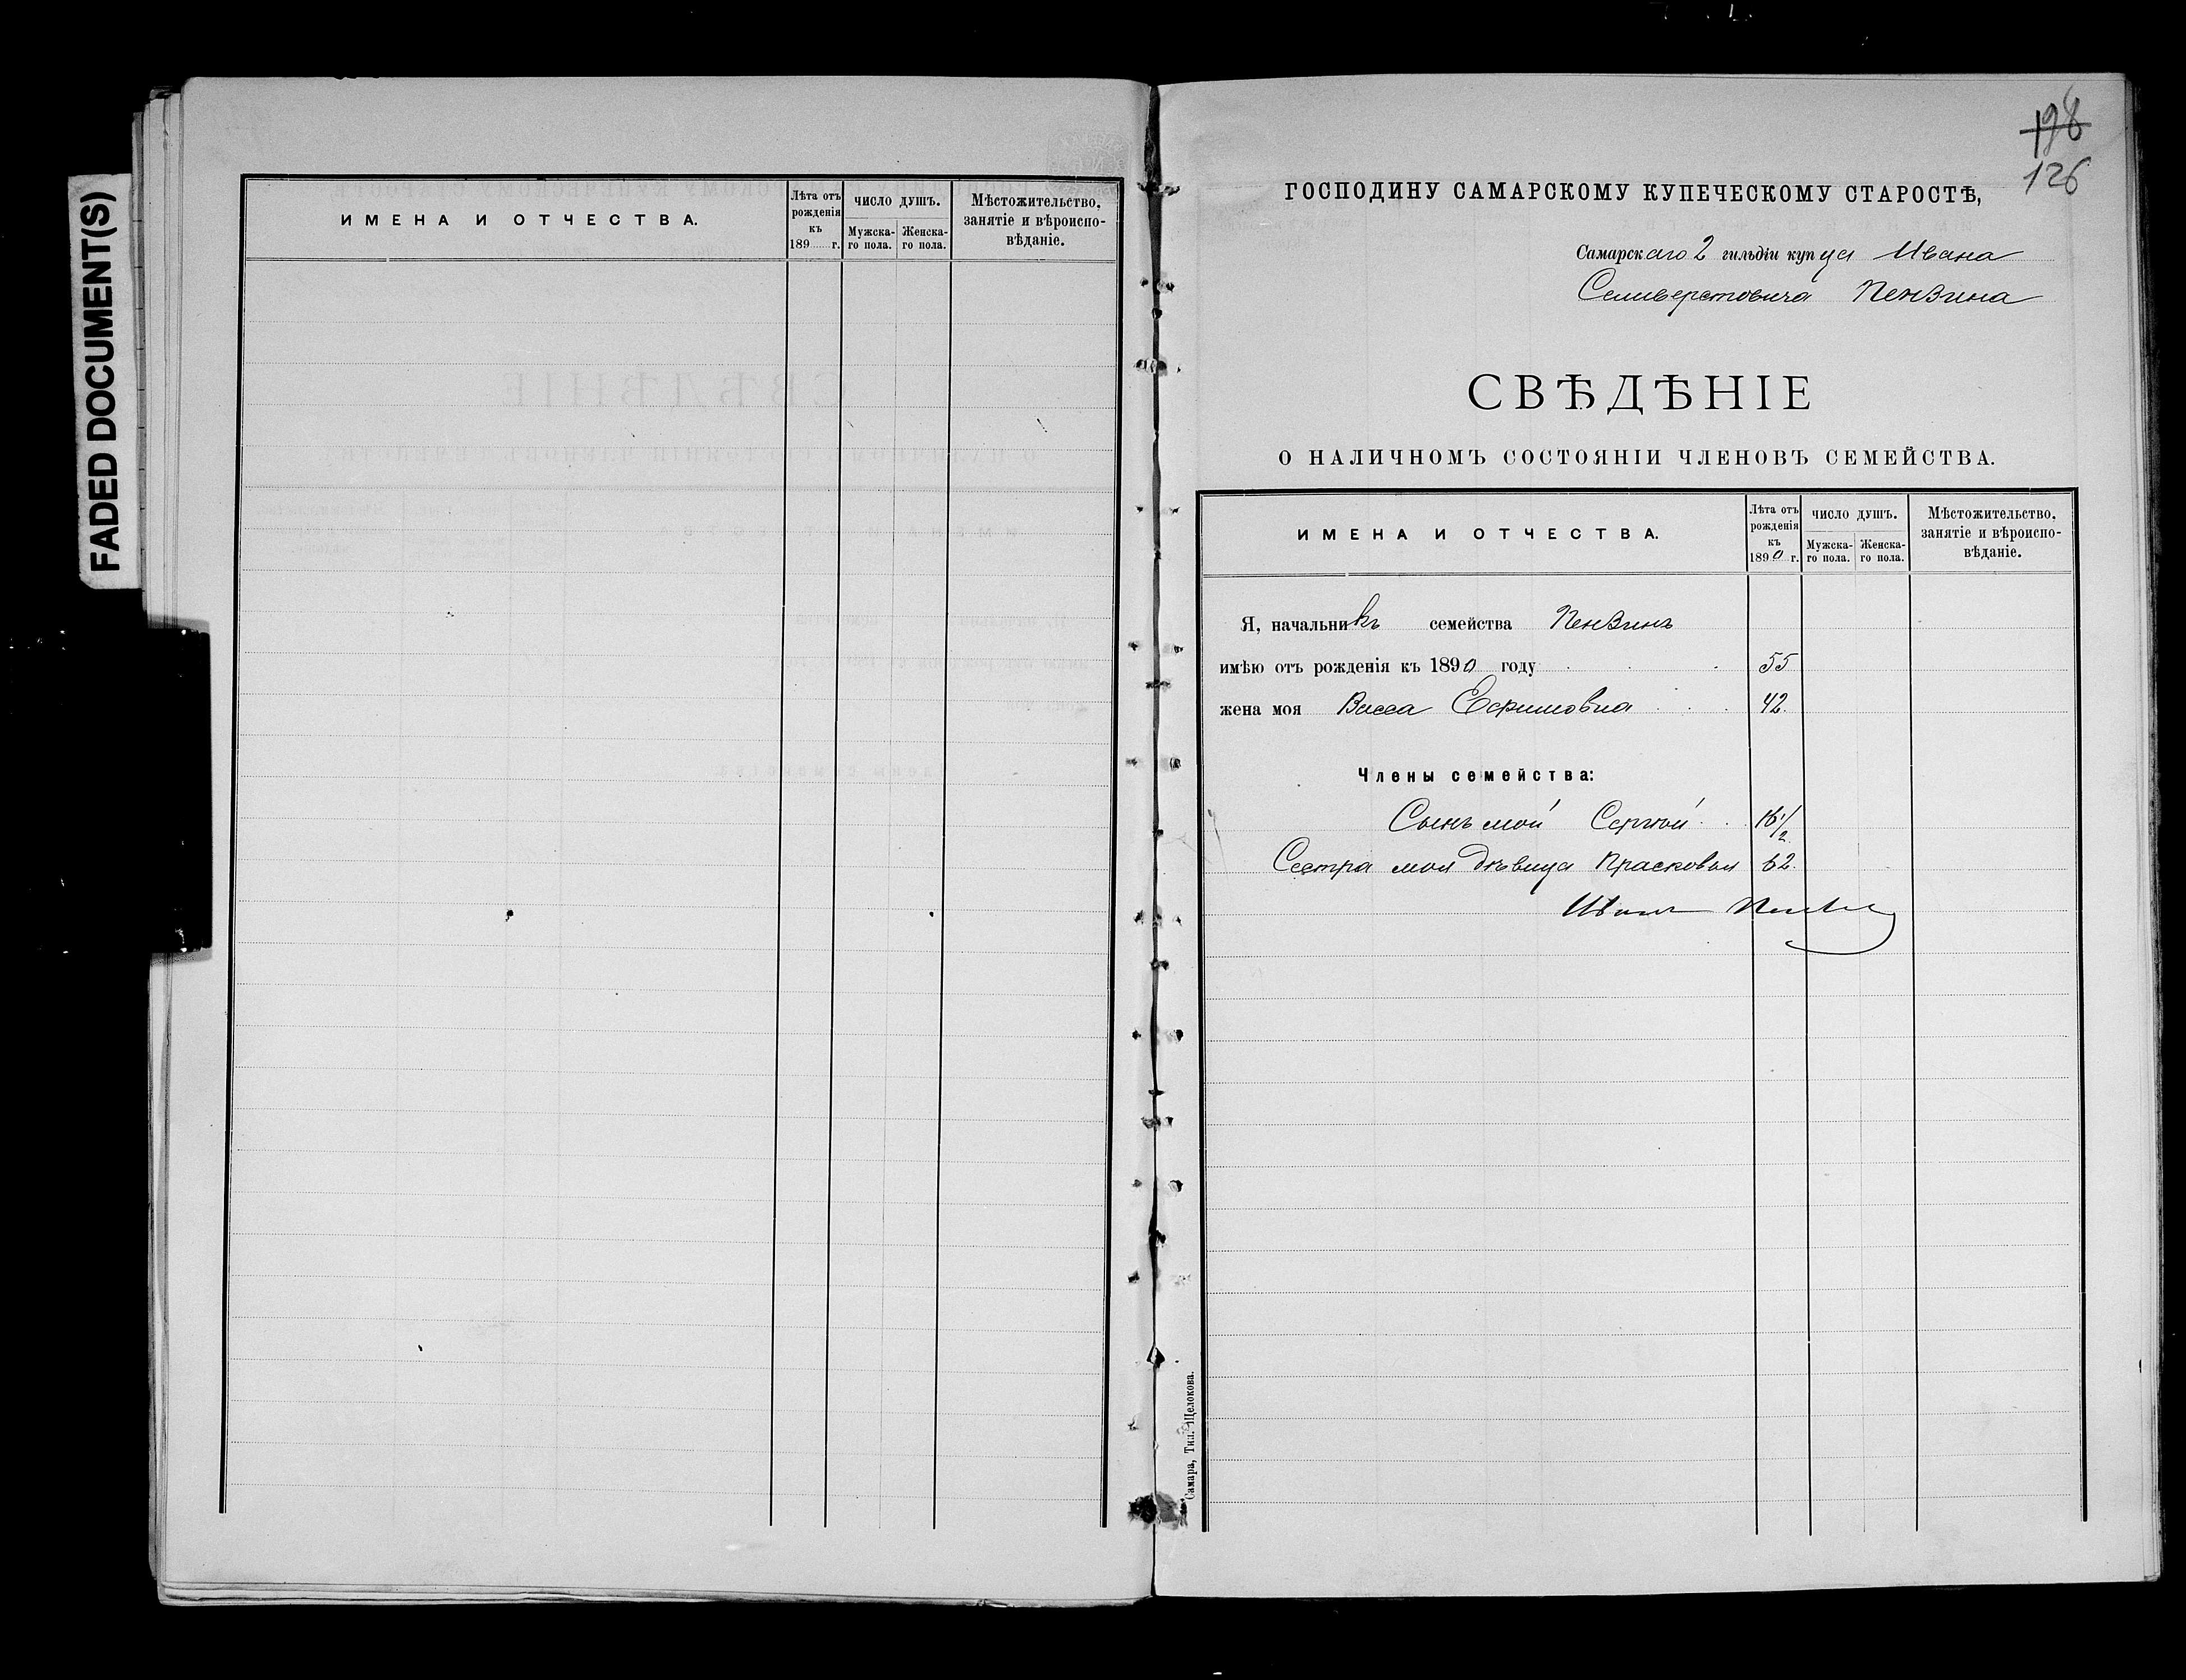 FADED DOCUMENT(S)
ИМЕНА И ОТЧЕСТВА.
Лѣта отъ рожденія къ 189 г.
ЧИСЛО ДУШЪ.
Мужска-го пола.
Женска-го пола.
Мѣстожительство, занятіе и вѣроиспо-вѣданіе.
198
126
ГОСПОДИНУ САМАРСКОМУ КУПЕЧЕСКОМУ СТАРОСТѢ,
Самарскаго 2 гильдіи купца Ивана
Селиверстовича Пензина
СВѢДѢНІЕ
О НАЛИЧНОМЪ СОСТОЯНІИ ЧЛЕНОВЪ СЕМЕЙСТВА.
ИМЕНА И ОТЧЕСТВА.
Лѣта отъ рожденія къ 1890 г.
ЧИСЛО ДУШЪ.
Мужска-го пола.
Женска-го пола.
Мѣстожительство, занятіе и вѣроиспо-вѣданіе.
Я, начальникъ семейства Пензинъ
имѣю отъ рожденія къ 1890 году 55
жена моя Васса Ефимовна 42.
Члены семейства:
Сынъ мой Сергѣй 16 1/2
Сестра моя дѣвица Прасковья 62.
Иванъ Пензинъ
Самара, Тип. Щелокова.